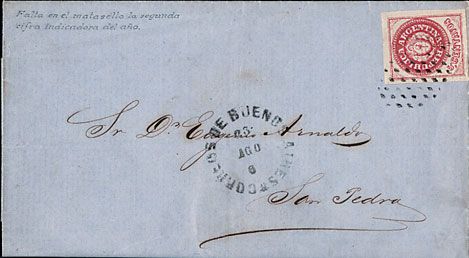 Falta en el matasello la segunda
cifra indicadora del año.
REPUBLICA ARGENTINA
CORREOS DE BUENOS AIRES
23
AGO
6
Sr. Dn. Eugenio Arnaldo
San Pedro